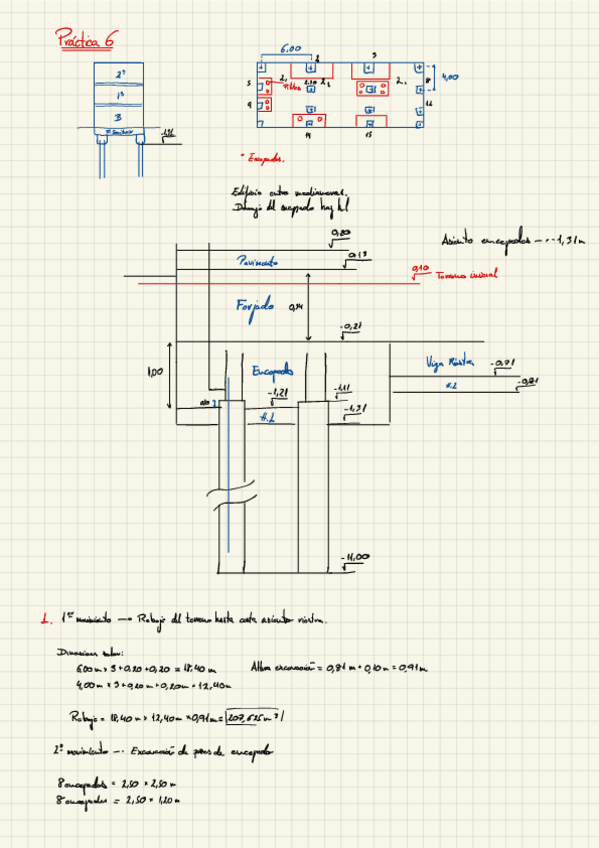 Práctica 6
2º
1º
B
F. Sanitario
-1,31
6,00
2
3
5
8
9
12
14
15
2,50
4,00
* Encepados.
Edificio entre medianeras.
Debajo del encepado hay HL
Asiento encepados -1,31m
0,20
0,13
Pavimento
0,10
Terreno inicial
Forjado
0,34
-0,21
1,00
Encepado
Viga Riostra
-0,71
H.L
-0,81
-1,21
-1,11
-1,31
H.L
-11,00
1. 1er movimiento → Rebaje del terreno hasta cota asiento riostra.
Dimensiones solar:
6,00m x 3 + 0,20 + 0,20 = 18,40 m
Altura excavación = 0,81m + 0,10m = 0,91m
4,00m x 3 + 0,20m + 0,20m = 12,40m
Rebaje = 18,40m x 12,40m x 0,91m = 207,626m³
2º movimiento → Excavación de pozos de encepado
8 encepados = 2,50 x 2,50 m
8 encepados = 2,50 x 1,20 m